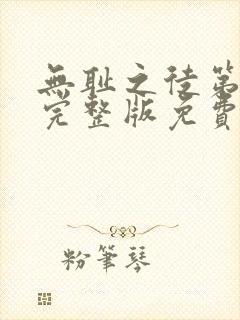 無耻之徒第
完整版免費
粉筆琴